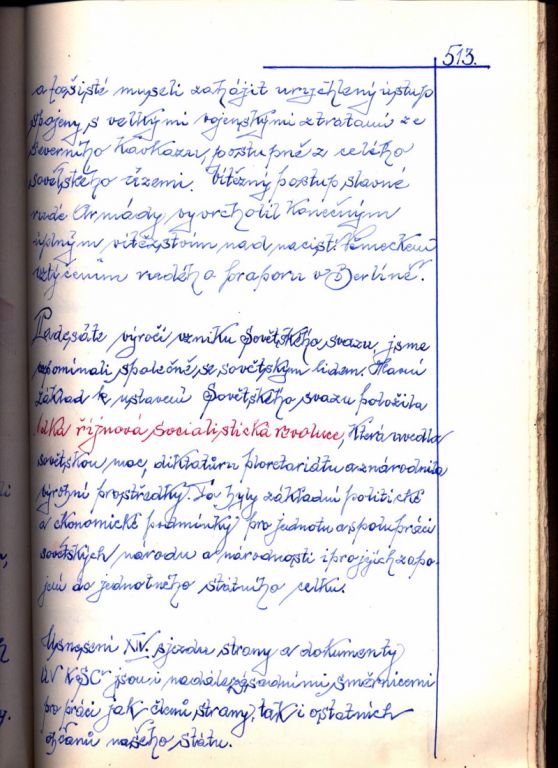 513.
a fašisté museli zahájit urychlený ústup
spojený s velkými vojenskými ztratami ze
Severního Kavkazu, postupně z celého
sovětského území. Vítězný postup slavné
rudé Armády vyvrcholil Konečným
úplným vítězstvím nad nacist. Německem
vztyčením rudého praporu v Berlíně.
Padesáte výročí vzniku Sovětského svazu, jsme
vzpomínali společně se sovětským lidem. Hlavní
základ k ustavení Sovětského svazu položila
Velká říjnová socialistická revoluce, Která uvedla
sovětskou moc, diktatůru ploretariátu a znárodnila
výrobní prostředky. To byly základní politické
a ekonomické podmínky pro jednotu a spolupráci
sovětských národu a národnosti i pro jejich zapo-
jení do jednotného státního celku.
Usnesení XIV. sjezdu strany a dokumenty
ÚV KSČ jsou i nadále zásadními směrnicemi
pro práci jak členů strany, tak i ostatních
občanů našeho státu.